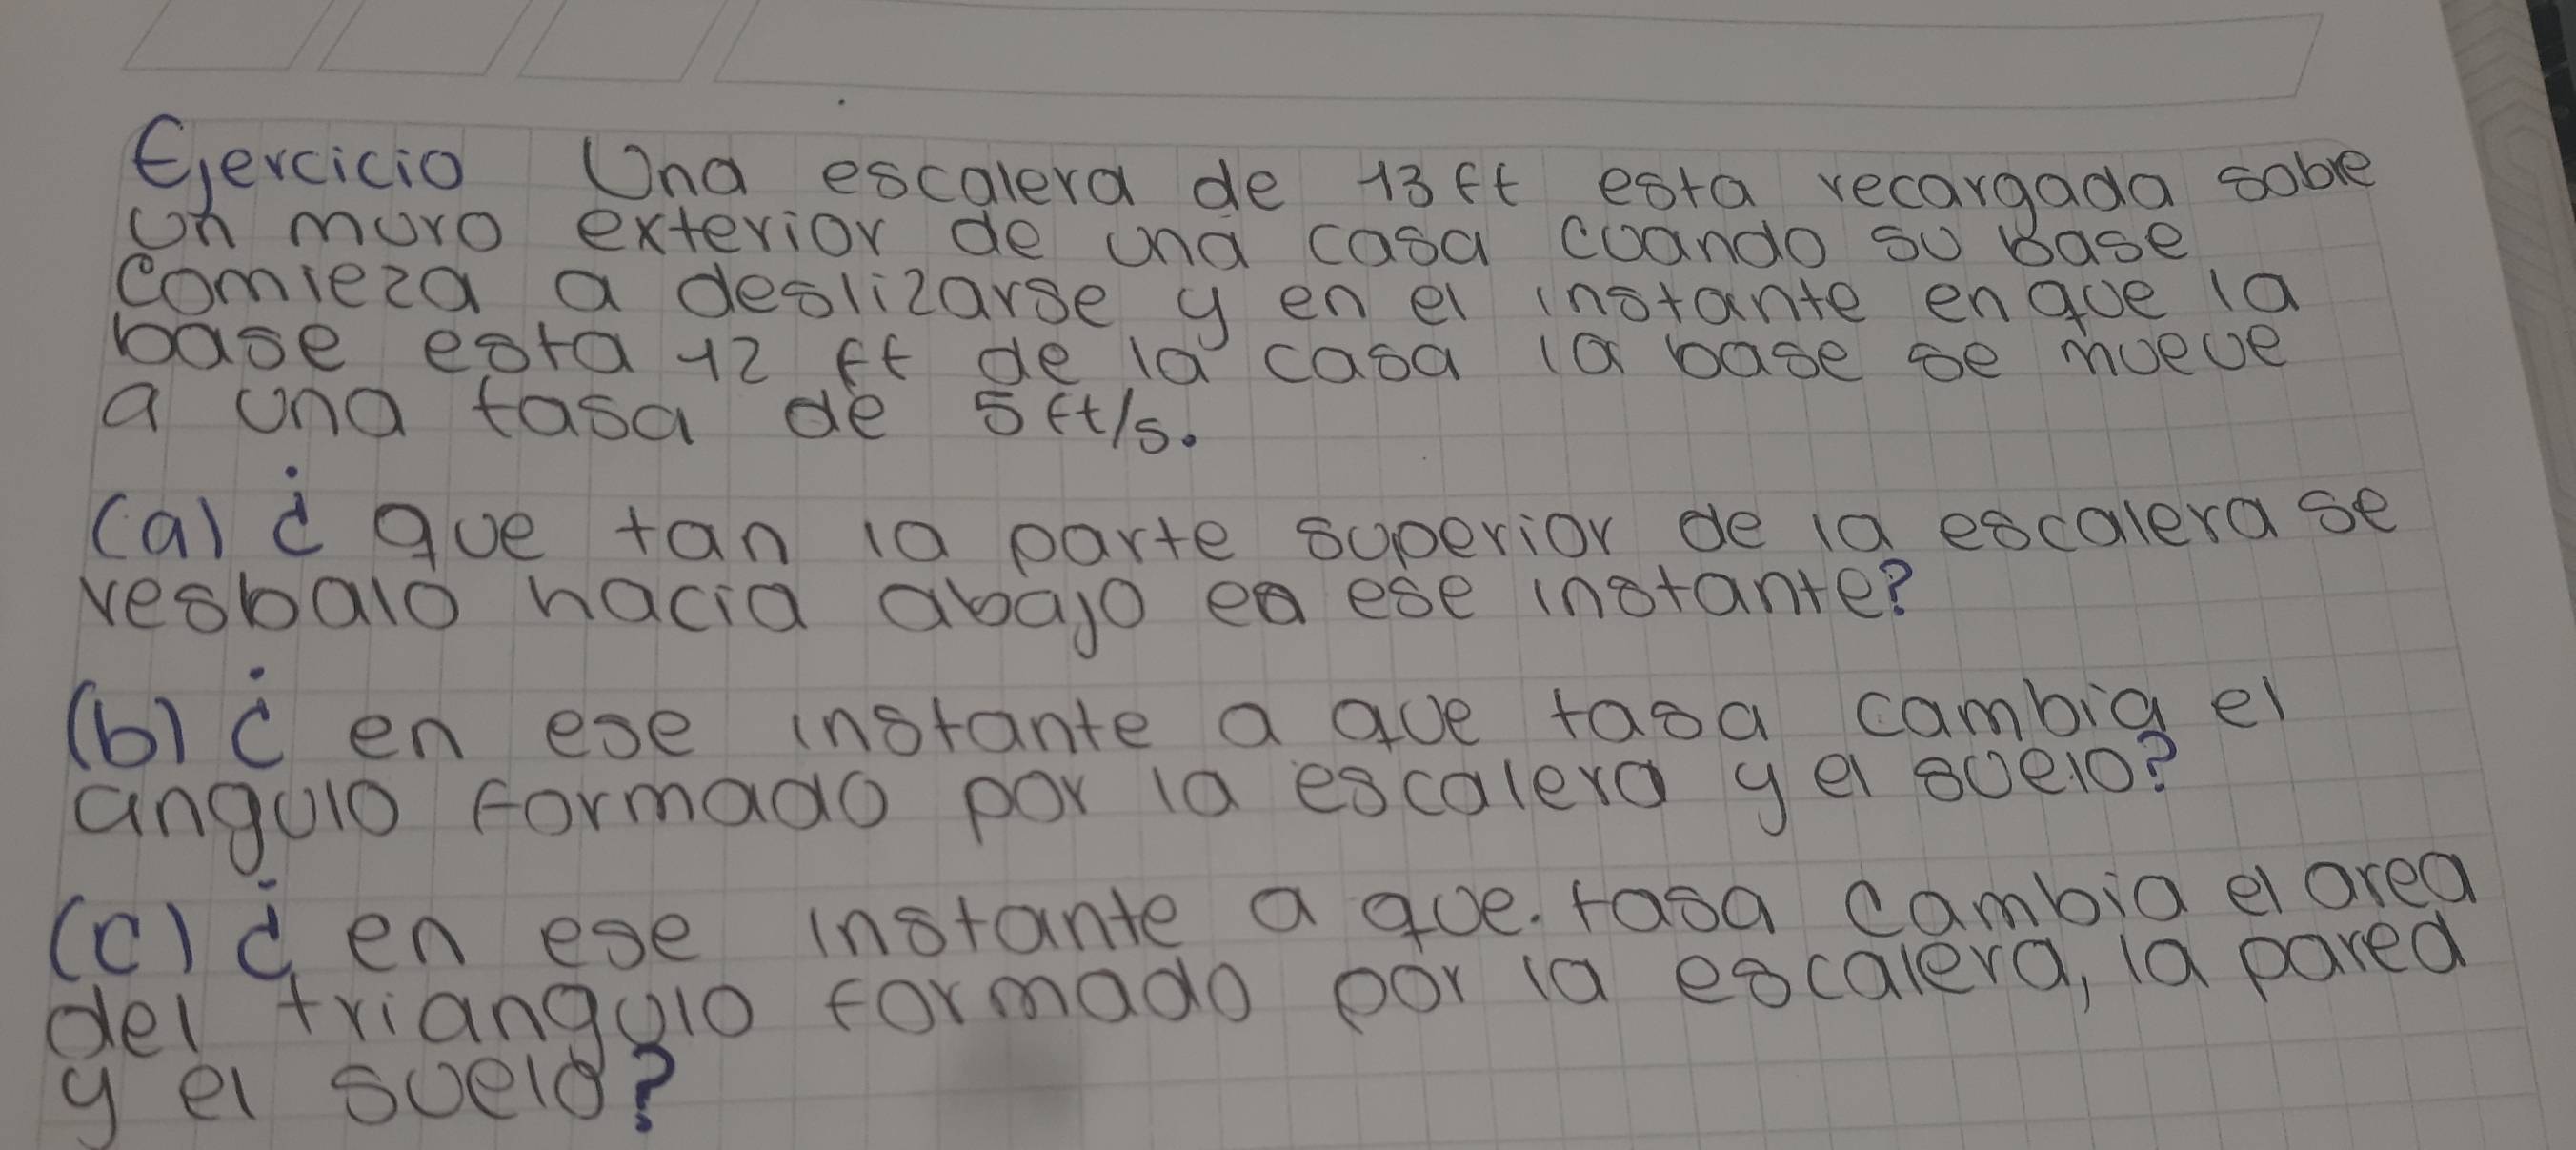 Ejercicio Una escalera de 13 ft esta recargada sobre
un muro exterior de una casa cuando su base
comieza a deslizarse y en el instante en que la
base esta 12 ft de la casa la base se mueve
a una tasa de 5 ft/s.
(a) ¿ que tan la parte superior de la escalera se
resbalo hacia abajo en ese instante?
(b) ¿ en ese instante a que tasa cambia el
angulo formado por la escalera y el suelo?
(c) ¿ en ese instante a que. tasa cambia el area
del triangulo formado por la escalera, la pared
y el suelo?